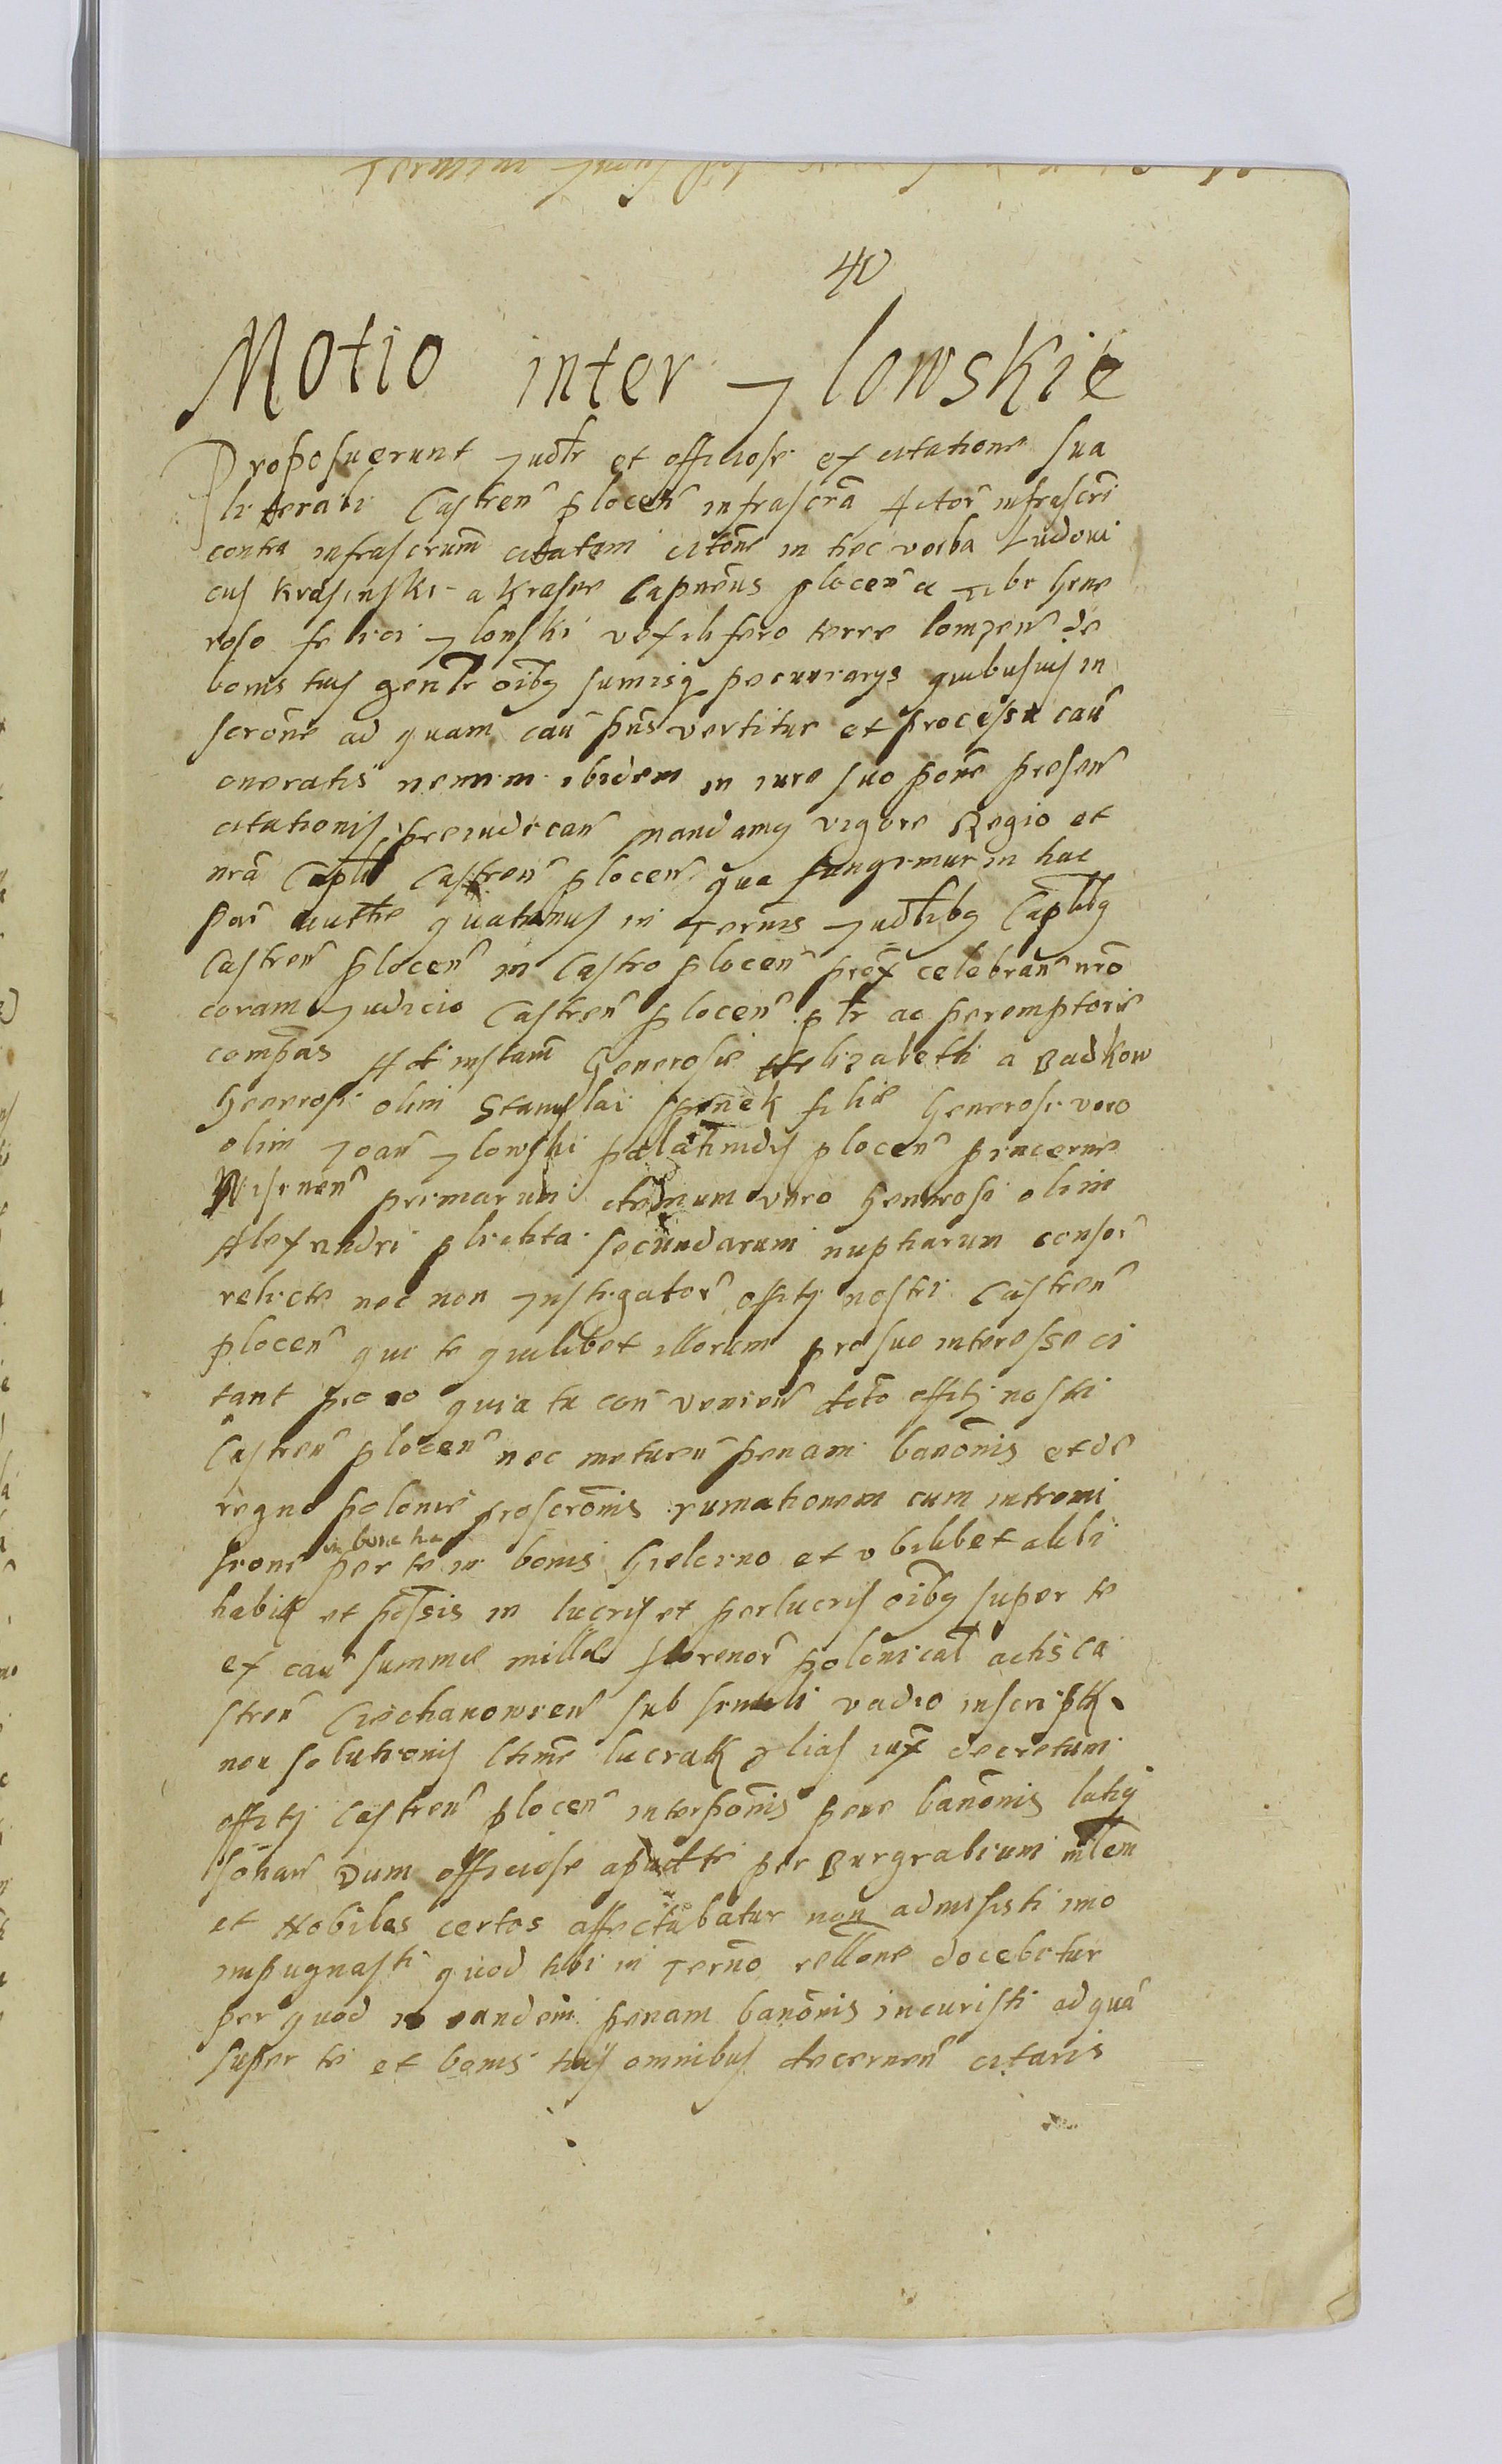 40
Motio inter Jlowskie
Proposuerunt Judtr et officiose ex citatione sua
literali Castren̄ plocen̄ infrascrā Actor̄ infrascrī
contra infrascrum̄ citatum citone in hec verba Ludovi
cus Krasinski a Krasne Capneus plocen̄ a Tibi Gene
roso felici Jlowski vexilifero terre lomzen̄ de
bonis tuis genlr oibq sumisq pecuniarys quibusuis in
scrone ad quam cau pns vertitur et processu cau
oneratis nemini ibidem in iure suo pone presen̄
citationis preiudican̄ mandamq vigore Regio et
nrā Capli Castren̄ plocen̄ qua fungimur in hac
par̄ autte quatenus in Ternis Judlibq Caplibq
Castren̄ plocen̄ in Castro plocen̄ prox celebran̄ nro
coram Judicio Castren̄ plocen̄ ptr ac peremptorie
compas Ad instam̄ Generose Elizabeth a Badkow
Generosi olim Stanislai filie Generosi vero
olim Joan̄ Jlowski palatinidis plocen̄ pincerne
Wisnen̄ primarum demum vero Generosi olim
Alexandri plichta secundarum nuptiarum consor̄
relicte nec non Instigator̄ offity nostri Castren̄
plocen̄ qui te quilibet illorum pro suo interesse ci
tant pro eo quia tu con̄ venien̄ dcto offity nostri
Castren̄ plocen̄ nec metuen̄ penam banonis et de
regno polonie proscronis rumationem cum intromi
sione per te in bonis Gielcino et vbilibet alibi
habitt et possis in lucris et perlucris oibq super te
ex cau summe mille florenor̄ polonical actis ca
stren̄ Ciechanowien̄ sub simili vadio inscriptt
non solutionis ltime lucratt alias iux decretum
offity Castren̄ plocen̄ interponis pene banonis latiq
sonan̄ Dum officiose apud te per Burgrabium
et Nobiles certos affectabatur non admisisti imo
impugnasti quod tibi in Terno rellone docebitur
per quod in eandem penam banonis incuristi ad quā
super te et bonis tuis omnibus decernen̄ citaris